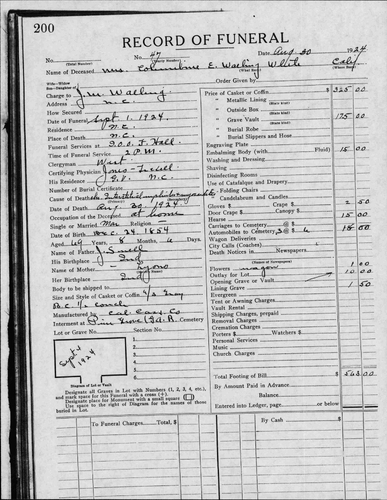 200
RECORD OF FUNERAL
No. 47 Date Aug 30 1924
Name of Deceased Mrs. Columbine E. Walling White Calif
Charge to J.M. Walling Order Given by
Address N.C.
How Secured
Date of Funeral Sept 1, 1924
Residence N.C.
Place of Death N.C.
Funeral Services at I.O.O.F. Hall
Time of Funeral Service 2 P.M.
Clergyman West
Certifying Physician Jones
His Residence N.C.
Number of Burial Certificate
Cause of Death
Date of Death Aug 30 1924
Occupation of the Deceased at home
Single or Married Religion
Date of Birth Dec. 24 1854
Aged 69 Years 8 Months 6 Days
Name of Father
His Birthplace Ind
Name of Mother Lyons
Her Birthplace Ind
Body to be shipped to
Size and Style of Casket or Coffin Gray
Manufactured by Cal Cas. Co
Interment at Pine Grove I.O.O.F. Cemetery
Lot or Grave No. Section No.
Sept 4 1924
1.
2.
3.
4.
5.
6.
Diagram of Lot or Vault
Designate all Graves in Lot with Numbers (1, 2, 3, 4, etc.),
and mark space for this Funeral with a cross (+).
Designate place for Monument with a small square
Use space to right of Diagram for the names of those
buried in Lot.
Price of Casket or Coffin $ 325 00
" Metallic Lining
" Outside Box
" Grave Vault 175 00
" Burial Robe
" Burial Slippers and Hose
Engraving Plate
Embalming Body (with Fluid) 15 00
Washing and Dressing
Shaving
Disinfecting Rooms
Use of Catafalque and Drapery
" Folding Chairs
" Candelabrum and Candles
Gloves $ Crape $ 2 50
Door Crape $ Candy $
Hearse 15 00
Carriages to Cemetery @ $
Automobiles to Cemetery 3 @ $ 6 18 00
Wagon Deliveries
City Calls (Coaches)
Death Notices in Newspapers
(Names of Newspapers) 1 00
Flowers wagon
Outlay for Lot 10 00
Opening Grave or Vault
Lining Grave 1 50
Evergreen
Tent or Awning Charges
Vault Rental
Shipping Charges, prepaid
Removal Charges
Cremation Charges
Porters $ Watchers $
Personal Services
Music
Church Charges
Total Footing of Bill $ 563 00
By Amount Paid in Advance
Balance
Entered into Ledger, page or below.
To Funeral Charges, Total By Cash